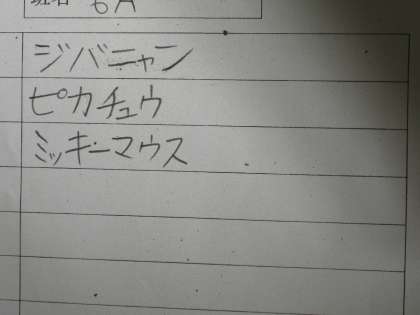 班名 6A
ジバニャン
ピカチュウ
ミッキーマウス